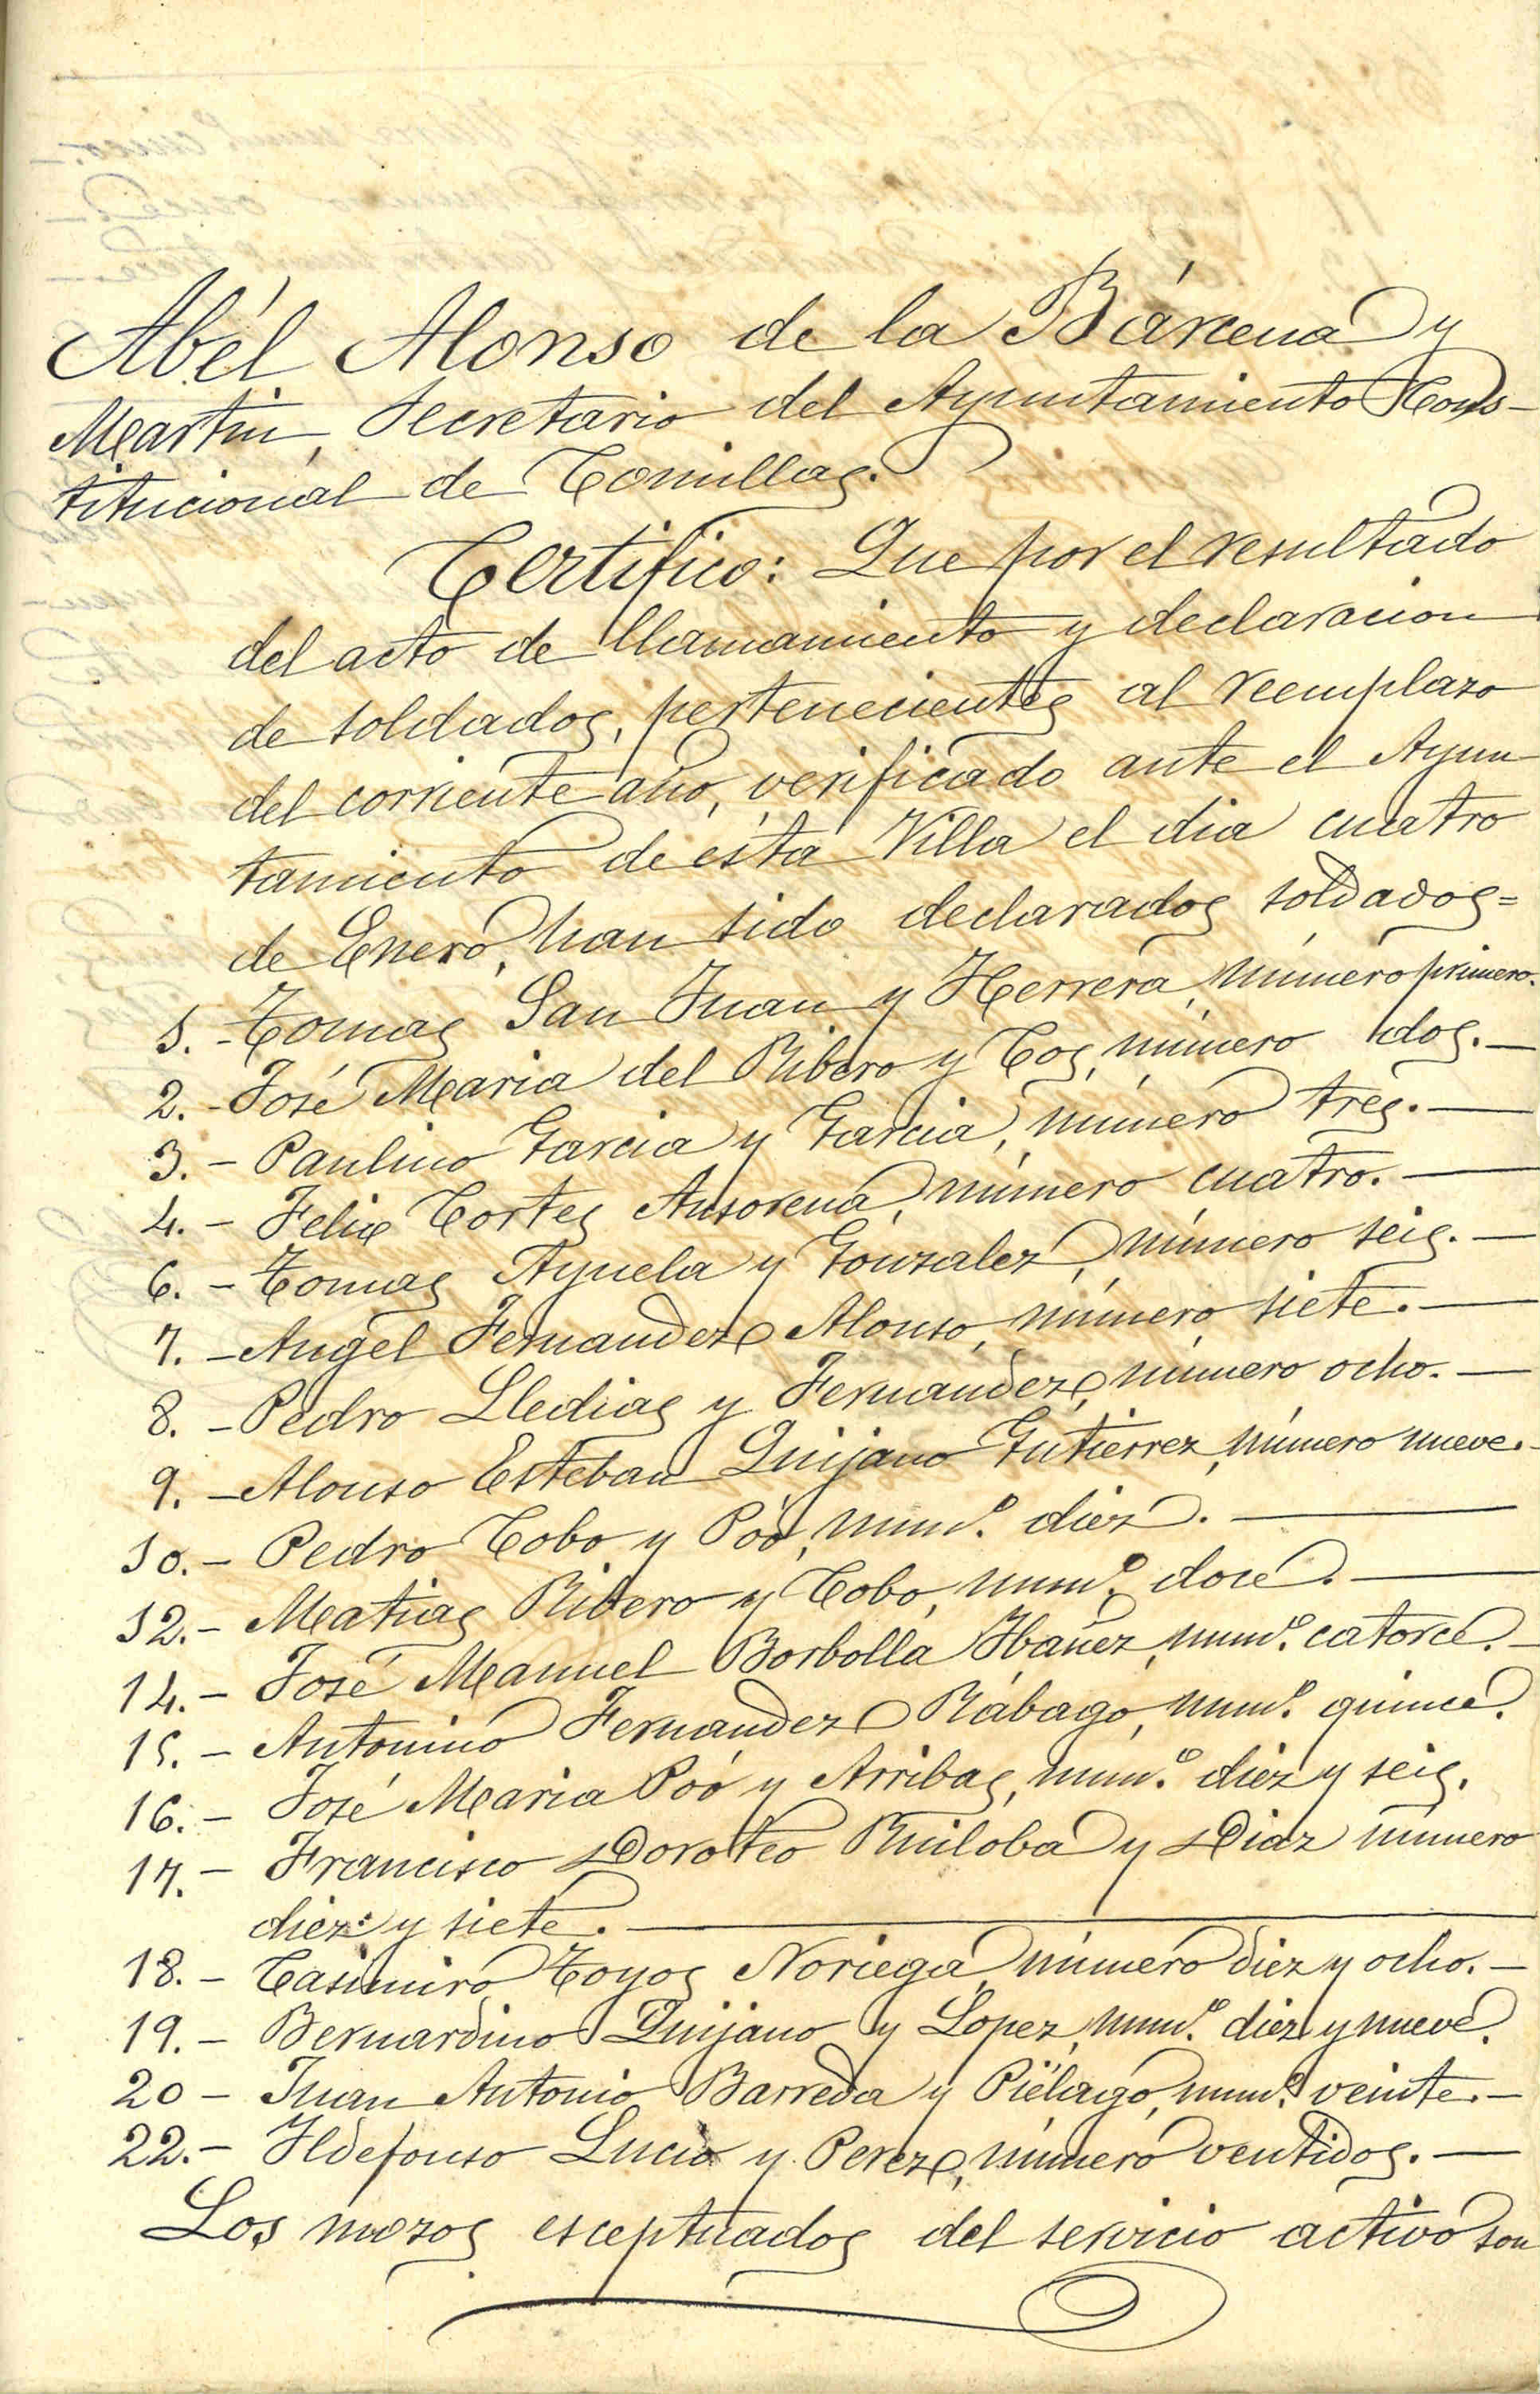 Abél Alonso de la Bárcena y
Martin, Secretario del Ayuntamiento Cons-
titucional de Comillas.
Certifico: Que por el resultado
del acto de llamamiento y declaracion
de soldados, pertenecientes al reemplazo
del corriente año, verificado ante el Ayun-
tamiento de esta Villa el dia cuatro
de Enero, han sido declarados soldados=
1. - Tomas San Juan y Herrera, número primero.
2. - José Maria del Ribero y Cos, número dos. —
3. - Paulino Garcia y Garcia, número tres. —
4. - Felix Cortes Ansorena, número cuatro. —
6. - Tomas Ayuela y Gonzalez, número seis. —
7. - Angel Fernandez Alonso, número siete. —
8. - Pedro Lledias y Fernandez, número ocho. —
9. - Alonso Esteban Quijano Gutierrez, número nueve. -
10. - Pedro Cobo y Póo, numº. diez. —
12. - Matias Ribero y Cobo, numº. doce. —
14. - José Manuel Borbolla Ibañez, numº. catorce. -
15. - Antonino Fernandez Rábago, numº. quince.
16. - José Maria Póo y Arribas, númº. diez y seis.
17. - Francisco Doroteo Ruiloba y Diaz número
diez y siete. —
18. - Casimiro Toyos Noriega, número diez y ocho. —
19. - Bernardino Quijano y Lopez, numº. diez y nueve.
20 - Juan Antonio Barreda y Piélago, numº. veinte. —
22. - Ildefonso Lucio y Perez, número ventidos. —
Los mozos esceptuados del servicio activo son